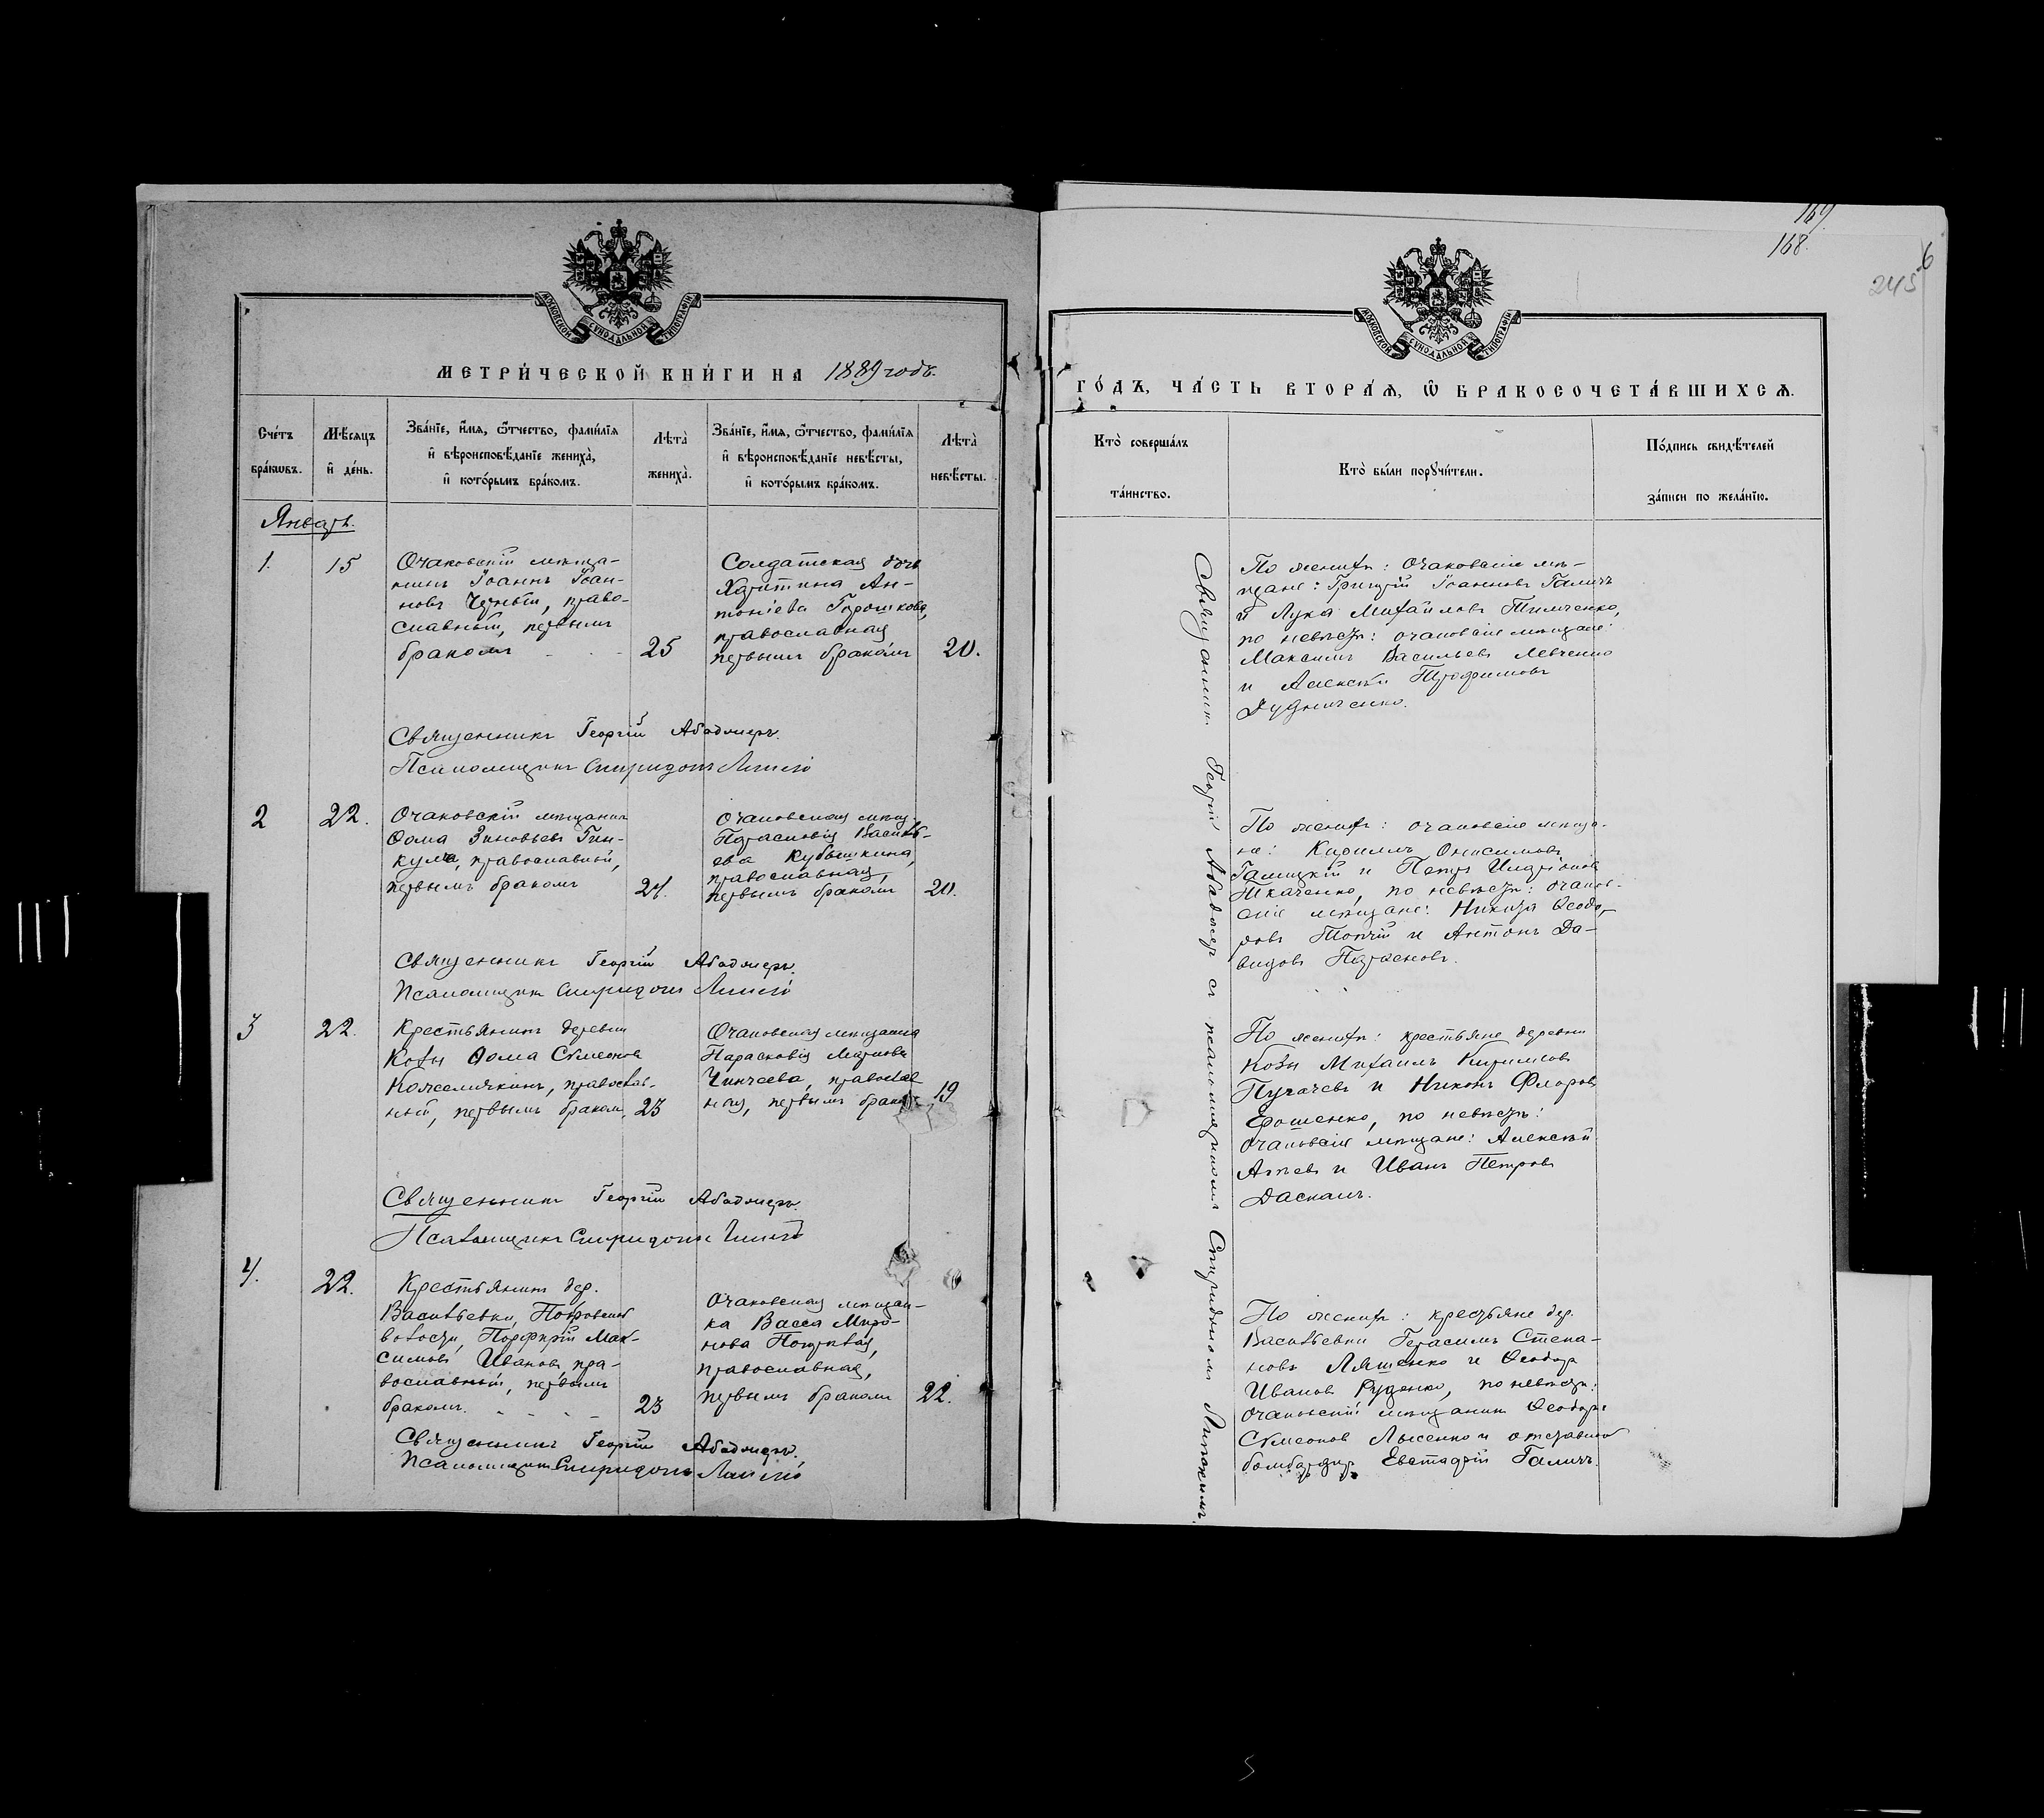 169
168.
245
6
МОСКОВСКОЙ СѴНОДАЛЬНОЙ ТИПОГРАФІИ
МЕТРИ́ЧЕСКОЙ КНИ́ГИ НА 1889 годъ.
Сче́тъ бра́кѡвъ.
Мѣ́сяцъ и҆ де́нь.
Зва́нїе, и҆́мя, ѻ҆́тчество, фами́лїя
и҆ вѣроисповѣ́данїе жениха̀,
и҆ кото́рымъ бра́комъ.
Лѣ́та жениха̀.
Зва́нїе, и҆́мя, ѻ҆́тчество, фами́лїя
и҆ вѣроисповѣ́данїе невѣ́сты,
и҆ кото́рымъ бра́комъ.
Лѣ́та невѣ́сты.
Январь.
1.
15
Очаковскій мѣща-
нинъ Іоаннъ Іоан-
новъ Черный, право-
славный, первымъ
бракомъ
25
Солдатская дочь
Харитина Ан-
тоніева Горошкова,
православная
первымъ бракомъ
20.
Священникъ Георгій Абаджеръ.
Псаломщикъ Спиридонъ
2
22.
Очаковскій мѣщанинъ
Ѳома Зиновьевъ Гин-
кула, православный,
первымъ бракомъ
24.
Очаковская мѣщ.
Парасковія Василь-
ева Кубышкина,
православная,
первымъ бракомъ
20.
Священникъ Георгій Абаджеръ.
Псаломщикъ Спиридонъ
3
22.
Крестьянинъ деревни
Козы Ѳома Сѵмеоновъ
Кожемячкинъ, православ-
ный, первымъ бракомъ,
23
Очаковская мѣщанка
Парасковія Маркова
Чинчеева, православ-
ная, первымъ бракомъ
19
Священникъ Георгій Абаджеръ.
Псаломщикъ Спиридонъ
4.
22.
Крестьянинъ дер.
Васильевки, Покровской
волости, Порфирій Мак-
симовъ Ивановъ, пра-
вославный, первымъ
бракомъ.
23
Очаковская мѣщан-
ка Васса Миро-
нова
православная,
первымъ бракомъ
22.
Священникъ Георгій Абаджеръ.
Псаломщикъ Спиридонъ
МОСКОВСКОЙ СѴНОДАЛЬНОЙ ТИПОГРАФІИ
ГО́ДЪ, ЧА́СТЬ ВТОРА́Я, Ѡ҆ БРАКОСОЧЕТА́ВШИХСЯ.
Кто̀ соверша́лъ
та́инство.
Кто̀ бы́ли порꙋчи́тели.
По́дпись свидѣ́телей
за́писи по жела́нїю.
Священникъ Георгій Абаджеръ съ псаломщикомъ Спиридономъ
По женихѣ: Очаковскіе мѣ-
щане: Григорій Іоанновъ Галичъ
и Лука Михайловъ Тимченко,
по невѣстѣ: очаковскіе мѣщане:
Максимъ Васильевъ Левченко
и Алексѣй Трофимовъ
Дудниченко.
По женихѣ: очаковскіе мѣща-
не: Кириллъ Онисимовъ
Галицкій и Петръ Иларіоновъ
Ткаченко, по невѣстѣ: очаков-
скіе мѣщане: Никита Ѳеодо-
ровъ Топчій и Антонъ Да-
видовъ Парасковъ.
По женихѣ: крестьяне деревни
Козы Михаилъ Кирилловъ
Пугачевъ и Никонъ Флоровъ
Ерошенко, по невѣстѣ:
очаковскіе мѣщане: Алексѣй
Агѣевъ и Иванъ Петровъ
Даскалъ.
По женихѣ: крестьяне дер.
Васильевки Герасимъ Степа-
новъ Ляшенко и Ѳеодоръ
Ивановъ Руденко, по невѣстѣ:
очаковскій мѣщанинъ Ѳеодоръ
Сѵмеоновъ Лысенко и отставной
бомбардиръ Евстафій Галичъ.